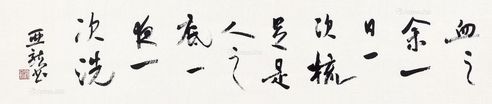 血之
余一
日一
次梳
足是
人之
底一
夜一
次洗